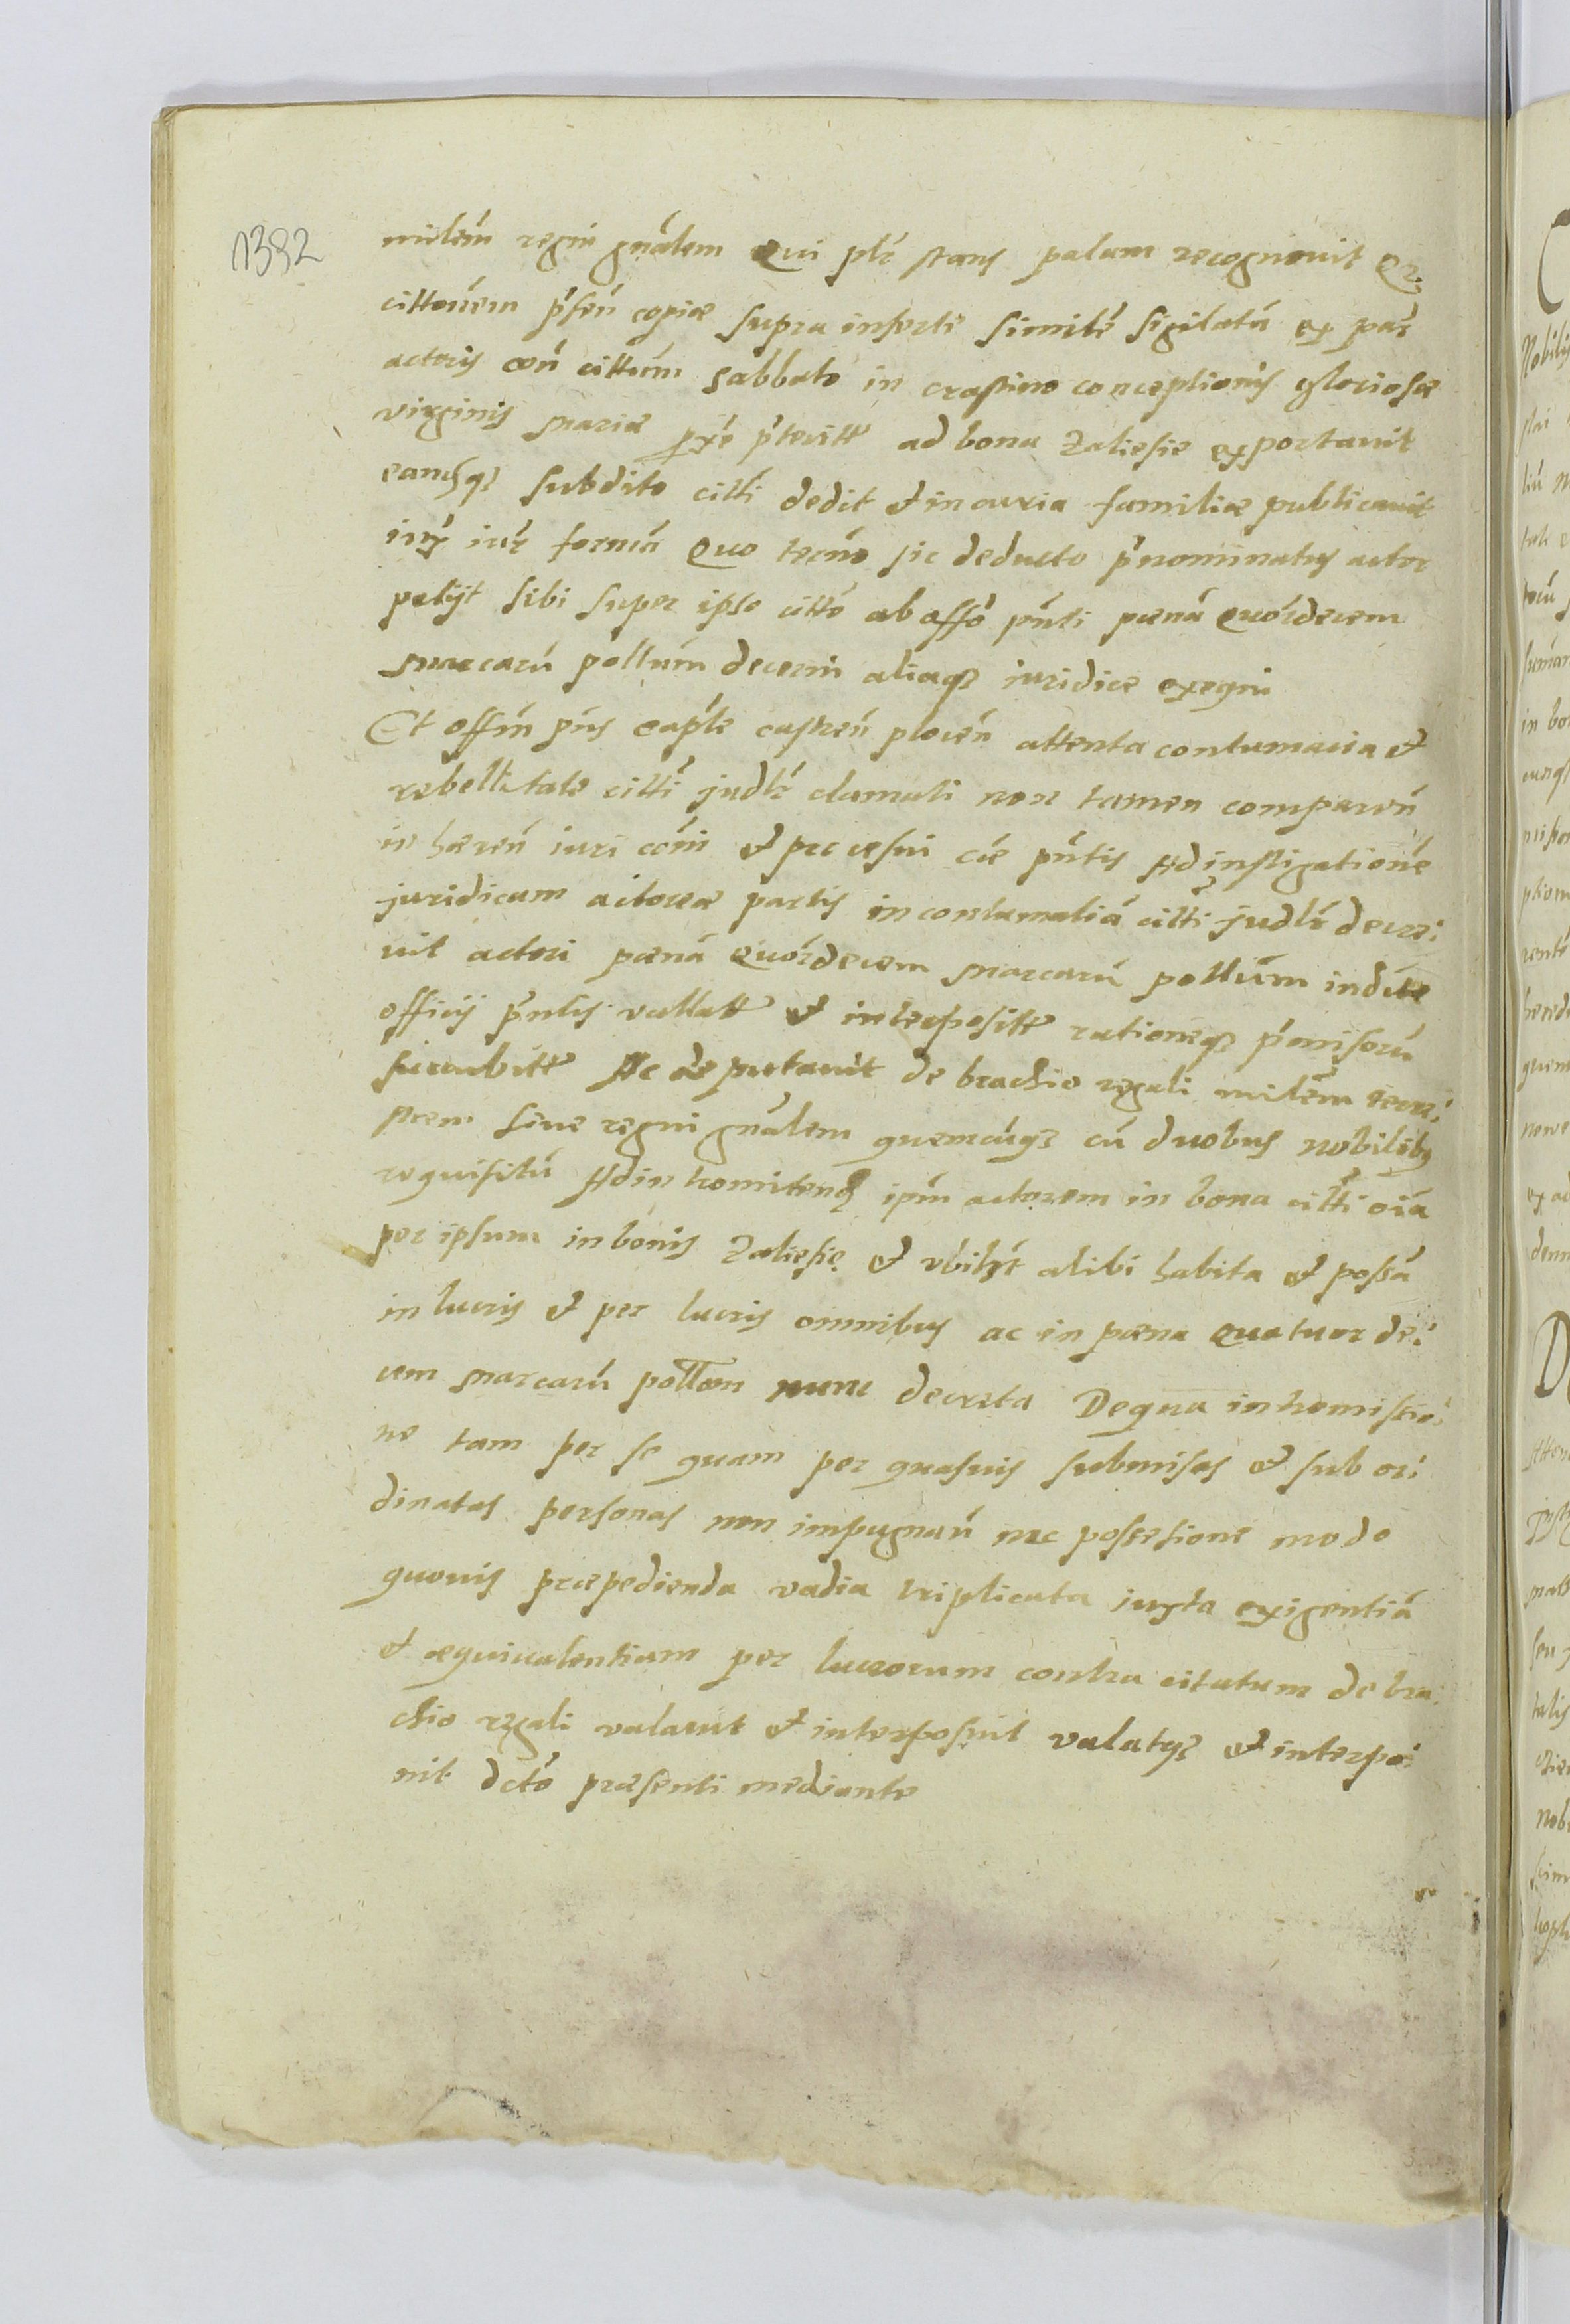 1392
milem̃ regni gñalem Qui pl̃r stans palam recognovit Qr:
cittõnem p̃señ copiæ supra inserte similẽ sigilatã ex par̃
actoris coñ cittum̃ sabbato in crastino conceptionis gloriosæ
virginis mariæ prẽterit̃ ad bona Zaliesie exportavit
eamq3 subdito citti dedit et in curia familiæ publicavit
iux̃ iur̃ formã Quo termo sic deducto p̃nominatus actor
petijt sibi super ipso cittõ ab offõ pñti pænã Quõrdecem
marcarũ pollũm decerni aliaq3 iuridice exegni
Et offm̃ pñs cap̃le castreñ ploceñ attenta contumacia et
rebellitate citti judlr̃ clamati non tamen compareñ
in hæreñ iuri com̃i et processui cæ pñtis Ad instigationẽ
juridicam actoreæ partis in contumatiã citti judlr̃ decre:
vit actori pænã Quõrdecem marcarũ pollũm indite
officij p̃ntis vallatt̃ et interpositt̃ rationeq3 p̃misorũ
sucubitt̃ Ac deputavit de brachio regali milem̃ terre:
strem sive regni gñalem quemcũq3 cũ duobus nobilibus
requisitũ Ad intromitend ipm̃ actorem in bona citti oĩa
per ipsum in bonis Zaliesie et ubilz̃t alibi habita et possã
in lucris et per lucris omnibus ac in pæna quatuor de:
cem marcarũ pollon nunc decreta De qua intromissio:
ne tam per se quam per quasvis submisas et sub or:
dinatas personas non impugnañ nec possesione modo
quovis præpedienda vadia triplicata iuxta exigentiã
et æquivalentiam per lucrorum contra citatum de bra:
chio regali valavit et interposuit valatq3 et interpo:
nit dctõ præsenti mediante